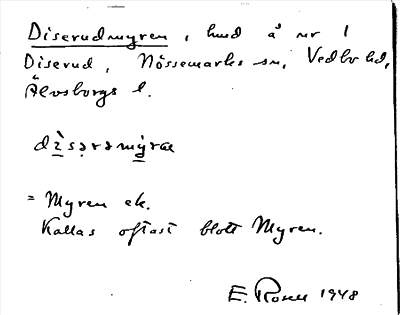 Diserudmyren, hmd å nr 1
Diserud, Nössemarks sn, Vedbo hd,
Älvsborgs l.
dìsərəmy̌ræ
= Myren ek.
Kallas oftast blott Myren.
E. Rosell 1948